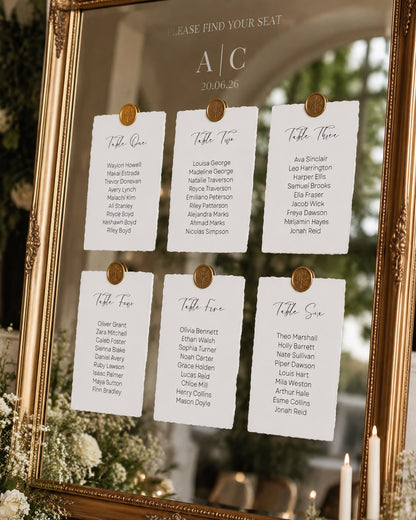 PLEASE FIND YOUR SEAT
A|C
20.06.26
Table One
Waylon Howell
Makai Estrada
Trevor Donovan
Avery Lynch
Malachi Kim
Ali Stanley
Royce Boyd
Keshawn Boyd
Riley Boyd
Table Two
Louisa George
Madeline George
Natalie Traverson
Royce Traverson
Emiliano Peterson
Riley Patterson
Alejandra Marks
Ahmad Marks
Nicolas Simpson
Table Three
Ava Sinclair
Leo Harrington
Harper Ellis
Samuel Brooks
Ella Fraser
Jacob Wick
Freya Dawson
Benjamin Hayes
Jonah Reid
Table Four
Oliver Grant
Zara Mitchell
Caleb Foster
Sienna Blake
Daniel Avery
Ruby Lawson
Isaac Palmer
Maya Sutton
Finn Bradley
Table Five
Olivia Bennett
Ethan Walsh
Sophia Turner
Noah Carter
Grace Holden
Lucas Reid
Chloe Mill
Henry Collins
Mason Doyle
Table Six
Theo Marshall
Holly Barrett
Nate Sullivan
Piper Dawson
Louis Hart
Mila Weston
Arthur Hale
Esme Collins
Jonah Reid